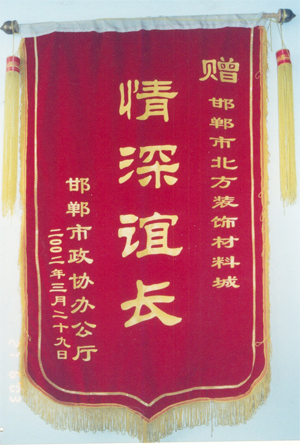 赠 邯郸市北方装饰材料城
情深谊长
邯郸市政协办公厅
二00二年三月二十九日